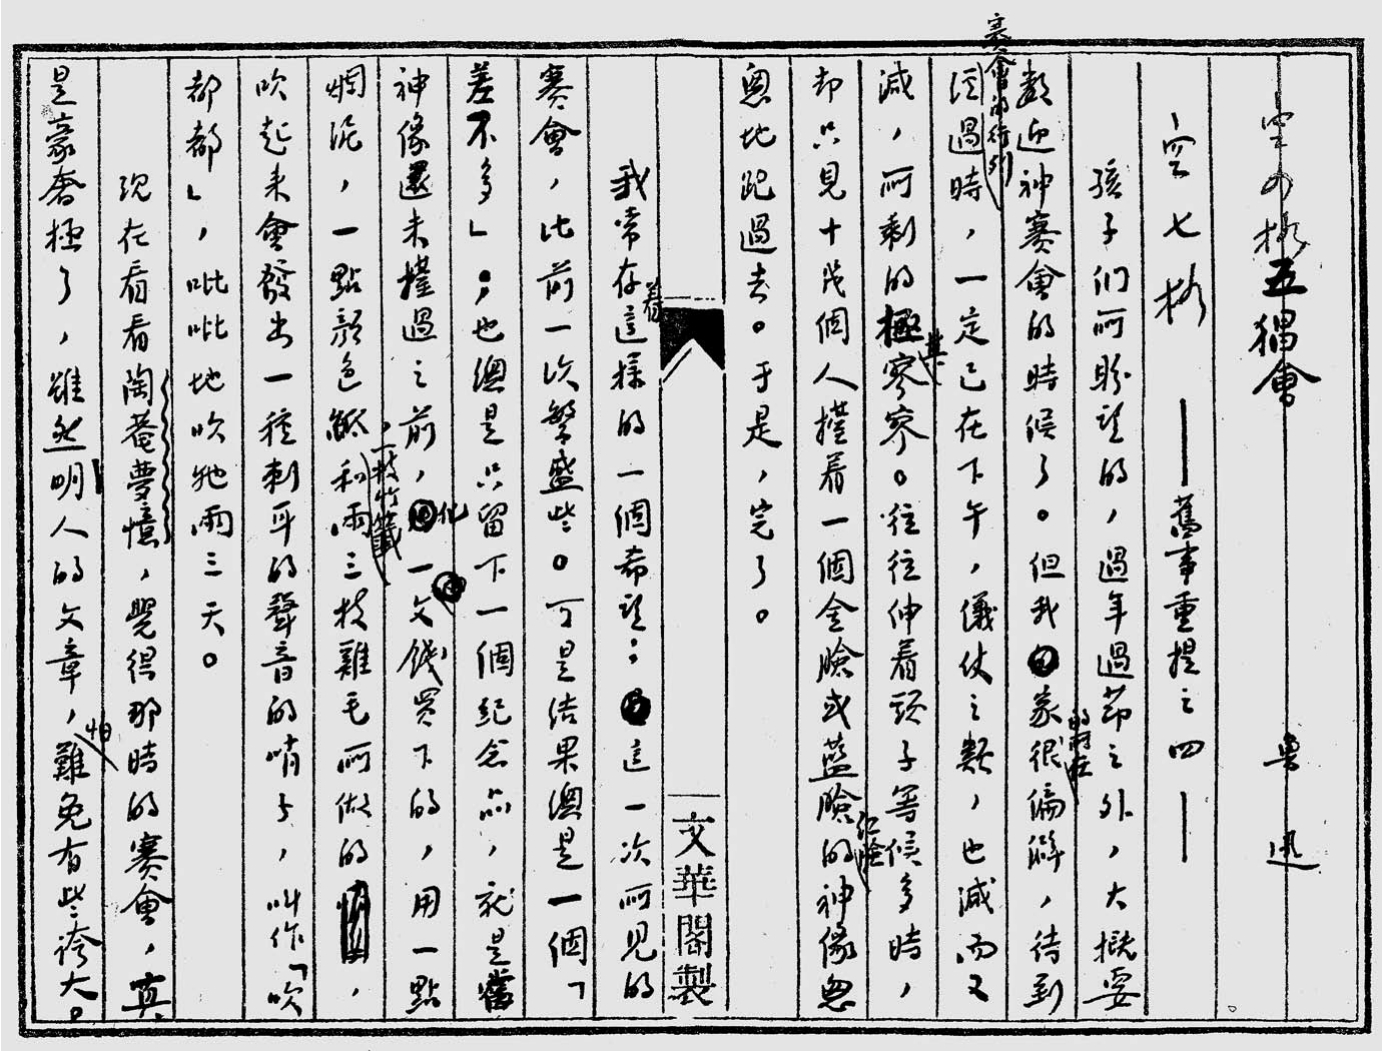 空四格五猖會　魯迅
空七格　——舊事重提之四——
孩子們所盼望的，過年過節之外，大概要
數迎神賽會的時候了。但我家的所在很偏僻，待到
賽會的行列經過時，一定已在下午，儀仗之類，也減而又
減，所剩的極其寥寥。往往伸着頸子等候多時，
却只見十幾個人擡着一個金臉或藍臉紅臉的神像匆
匆地跑過去。于是，完了。
文華閣製
我常存着這樣的一個希望：這一次所見的
賽會，比前一次繁盛些。可是結果總是一個「
差不多」；也總是只留下一個紀念品，就是當
神像還未擡過之前，化一文錢買下的，用一點
爛泥，一點顏色紙，一枝竹籤和兩三枝雞毛所做的，
吹起來會發出一種刺耳的聲音的哨子，叫作「吹
都都」，吡吡地吹牠兩三天。
現在看看陶菴夢憶，覺得那時的賽會，真
是豪奢極了，雖然明人的文章，怕難免有些誇大。